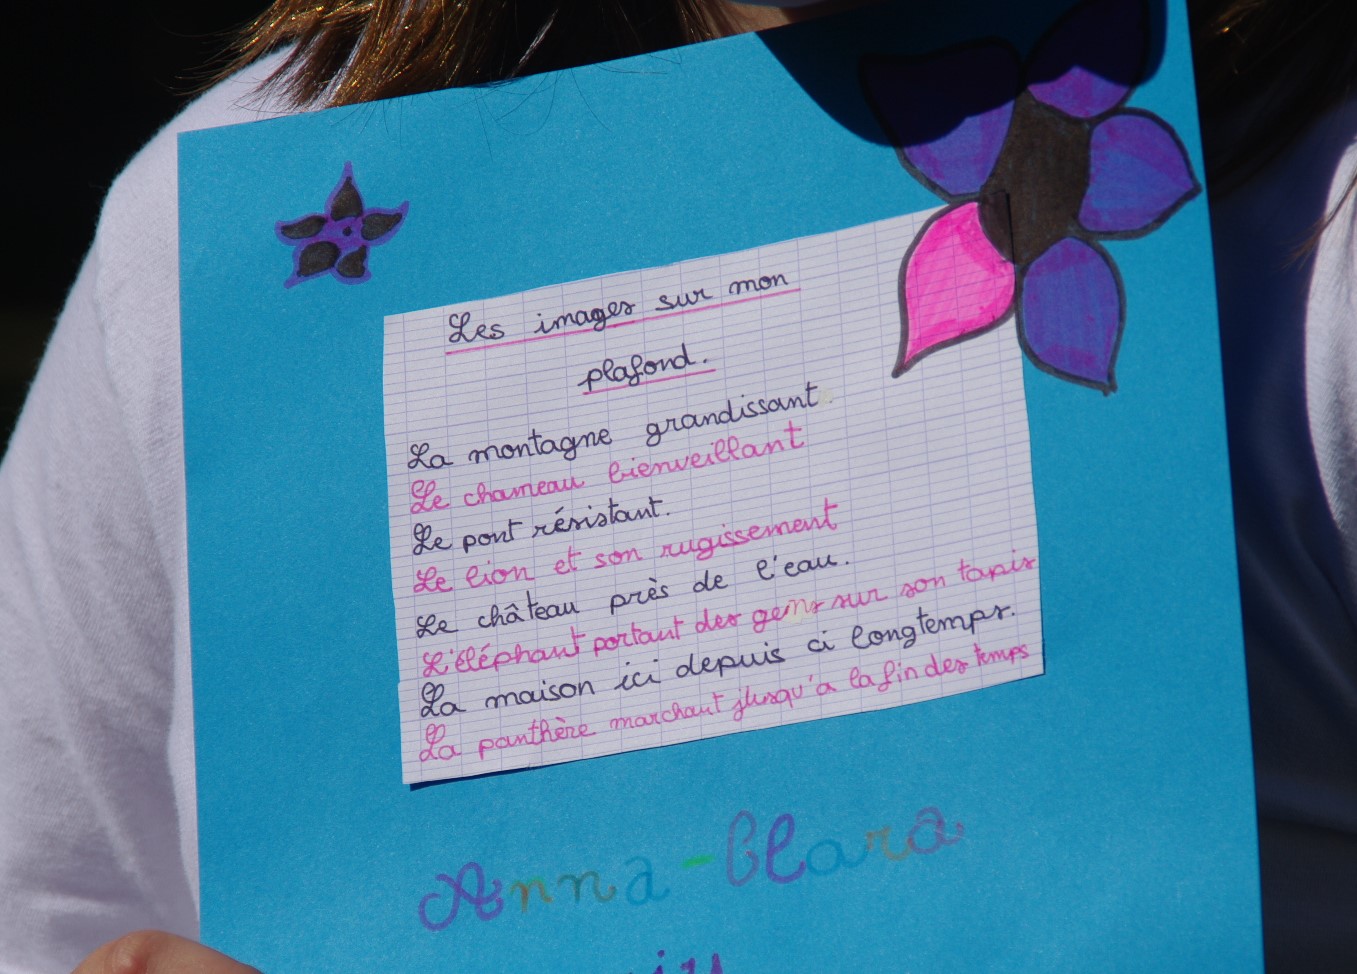 Les images sur mon
plafond.
La montagne grandissant
Le chameau bienveillant
Le pont résistant.
Le lion et son rugissement
Le château près de l'eau.
L'éléphant portant des gens sur son tapis
La maison ici depuis ci longtemps.
La panthère marchant jusqu'a la fin des temps
Anna-Clara